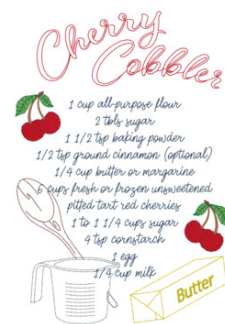 Cherry
Cobbler
1 cup all-purpose flour
2 tbls sugar
1 1/2 tsp baking powder
1/2 tsp ground cinnamon (optional)
1/4 cup butter or margarine
6 cups fresh or frozen unsweetened
pitted tart red cherries
1 to 1 1/4 cups sugar
4 tsp cornstarch
1 egg
1/4 cup milk
Butter